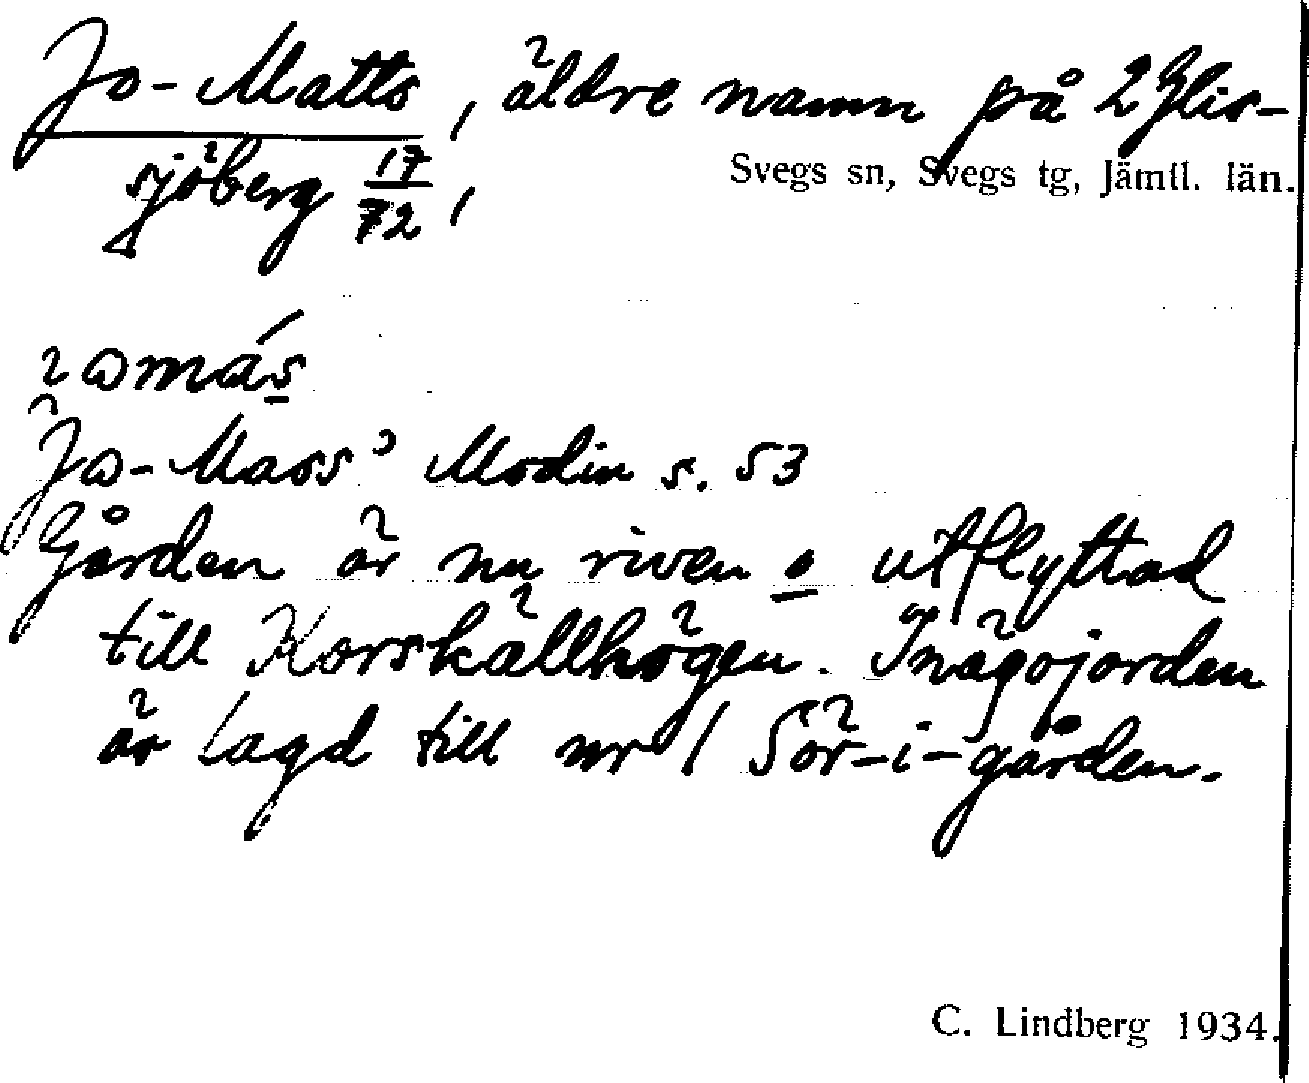 Jo-Matts, äldre namn på 2 Glis-
Svegs sn, Svegs tg, Jämtl. län.
sjöberg 17/72,
Jo-Mass' Modin s. 53
Gården är nu riven o utflyttad
till Korskällhögen. Inägojorden
är lagd till nr 1 Sör-i-gården.
C. Lindberg 1934.